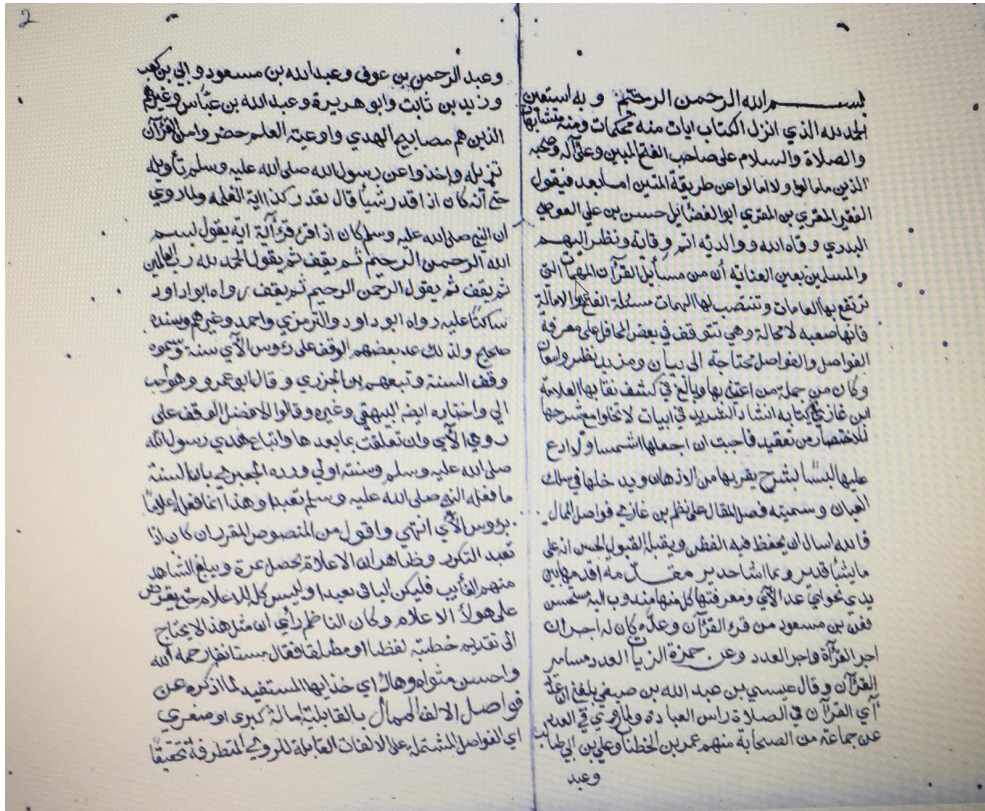 بسم الله الرحمن الرحيم وبه استعين
الحمد لله الذي انزل الكتاب ايات منه محكمات ومنه متشابهات
والصلاة والسلام على صاحب الفتح المبين وعلى آله وصحبه
الذين مامالوا ولا امالوا عن طريقة المتين اما بعد فيقول
الفقير المقري بن المقري ابو الفضائل حسن بن علي العوضي
البدري وقاه الله ووالديه اتم وقاية ونظر اليهم
والمسلمين بعين العناية أن من مسائل القرآن المهمات التي
ترتفع بها العامات وتنتصب لها الهمات مسئلة الفتح والامالة
فانها صعبه لا محالة وهي تتوقف في بعض المحافل على معرفة
الفواصل والفواصل محتاجة الى بيان ومزيد نظر وامعان
وكان من جملة من اعتنى بها وبالغ في كشف نقابها العلامة
ابن غازي في كتابه انشاد الشريد في ابيات لا تخلوا مع شرحها
للاختصار من تعقيد فاجبت ان اجعلها شمسا ولا ادع
عليها لبسًا بشرح يقربها من الاذهان ويدخلها في سلك
العيان وسميته فصل المقال على نظم بن غازي فواصل الممال
فالله اسال ان يحفظ فيه الفطن ويقبله القبول الحسن انه على
ما يشا قدير وبما شا جدير مقدمه اقدمها بين
يدى نحواي عد الآي ومعرفتها كل منها مندوب اليه مستحسن
فعن بن مسعود من قرء القرآن وعده كان له اجران
اجر القرآة واجر العدد وعن حمزة الزيات العدد مسامر
القرآن وقال عيسي بن عبد الله بن صيفي بلغني ان عد
آي القرآن في الصلاة راس العبادة وللجزري في العدد
عن جماعة من الصحابة منهم عمر بن الخطاب وعلي بن ابي طالب
وعبد
2
وعبد الرحمن بن عوف وعبد الله بن مسعود وابي بن كعب
وزيد بن ثابت وابو هريرة وعبد الله بن عباس وغيرهم
الذين هم مصابيح الهدي واوعيته العلم حضروا من القرآن
تنزيله واخذوا عن رسول الله صلى الله عليه وسلم تأويله
حتى أنه كان اذا قدر شيأ قال بقدر كذا اية
ان النبي صلى الله عليه وسلم كان اذا قرء قرء آية اية يقول بسم
الله الرحمن الرحيم ثم يقف ثم يقول الحمد لله رب العالمين
ثم يقف ثم يقول الرحمن الرحيم ثم يقف رواه ابو داود
ساكتا عليه رواه ابو داود والترمزي واحمد وغيرهم وسنده
صحيح ولذلك عد بعضهم الوقف على رؤس الآي سنة وسموه
وقف السنة وتبعهم بن الجزري وقال ابو عمرو وهو احب
الي واختاره ايضه البيهقي وغيره وقالوا الافضل الوقف على
روس الآي وان تعلقت بما بعدها واتباع هدي رسول الله
صلى الله عليه وسلم وسنته اولي ورده الجعبري بان السنة
ما فعله النبي صلى الله عليه وسلم تعبدا وهذا انما فعله اعلامًا
برؤوس الآي انتهي واقول من المنصوص المقرر ان كان اذا
تعبد التكرر وظاهر ان الاعلام يحصل بمرة ويبلغ الشاهد
منهم الغايب فليكن الباقي تعبدا وليس كله للاعلام حتي يعترض
على هولاء الاعلام وكان الناظم رأي ان مثل هذا لا يحتاج
الى تقديم خطبة لفظا او مطلقا فقال مستانفا رحمه الله
واحسن مثواه وهاك اي خذ ايها المستفيد لما اذكره عن
فواصل الالف الممال بالقابلية امالة كبرى او صغري
اي الفواصل المشتملة على الالفات القابلة للروي المتطرفة تحقيقًا